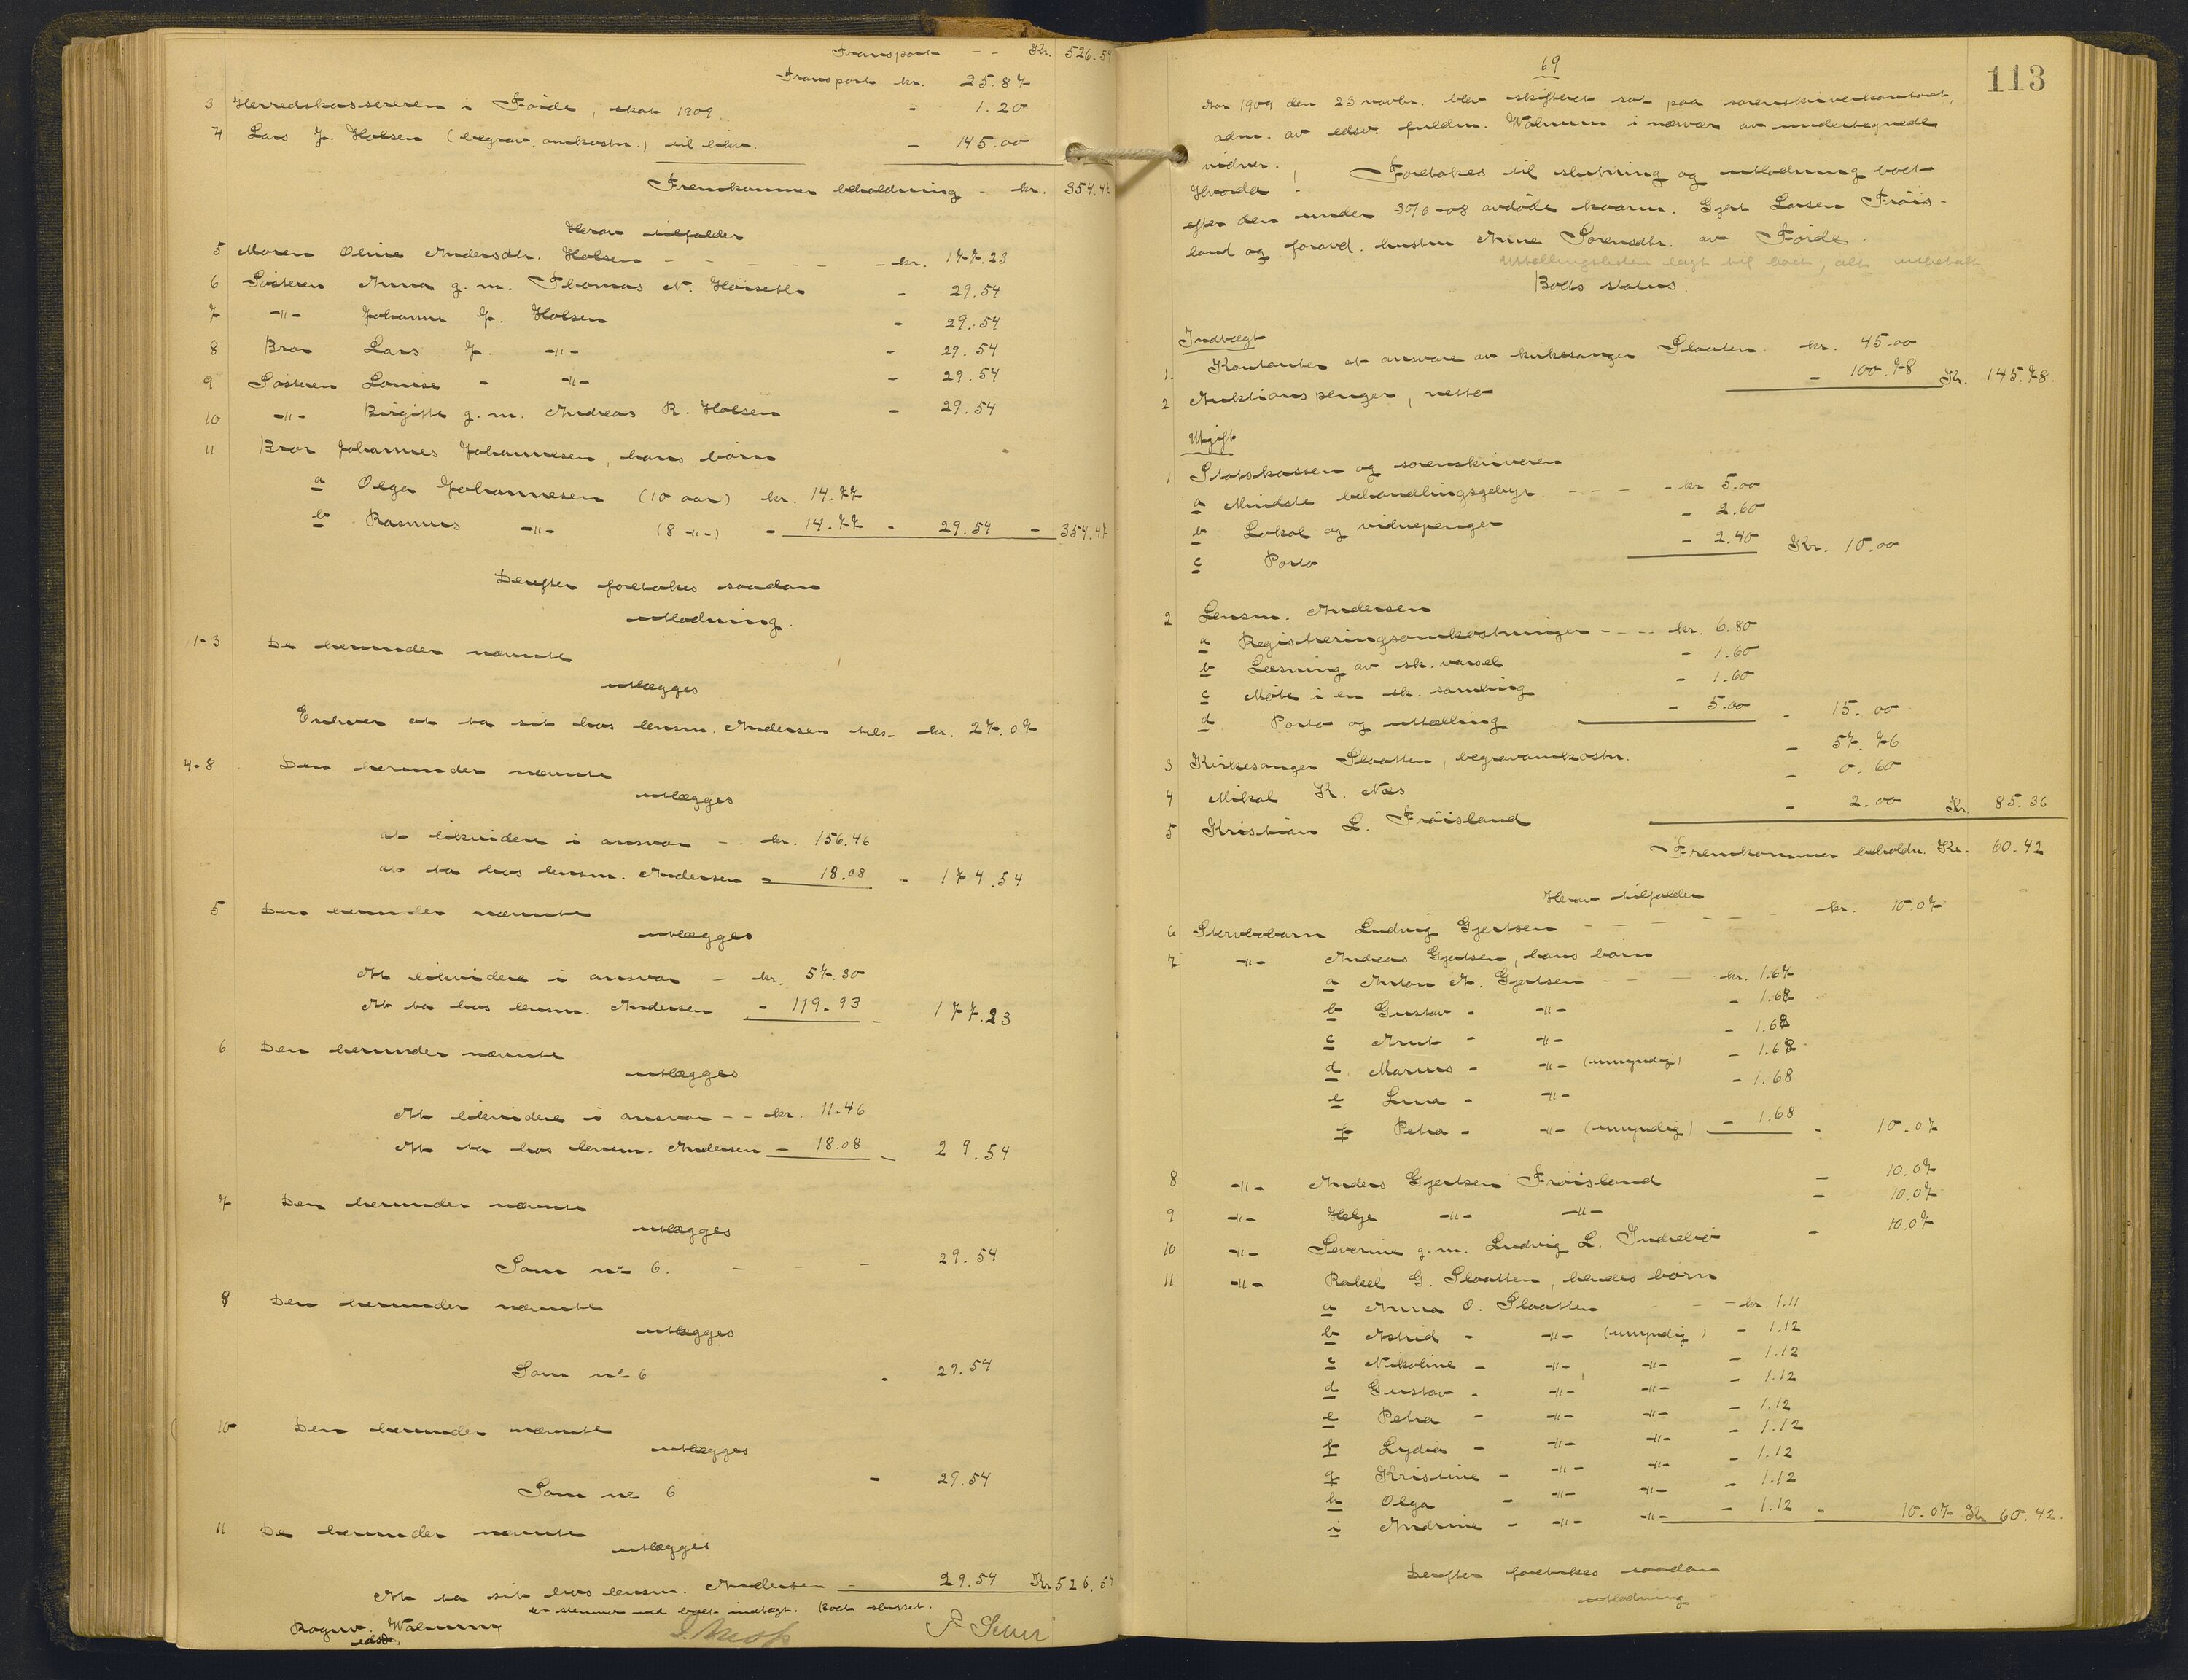 Transport - - Kr. 526.54
Transport kr. 25.87
3 Herredskassereren i Førde, skat 1909 - 1.20
4 Lars J. Holsen (begrav. omkostn.) til likv. - 145.00
Fremkommer beholdning - kr. 354.47
Herav tilfalder
5 Moren Oline Andersdtr. Holsen - - - - - kr. 177.23
6 Søsteren Anna g. m. Thomas N. Høiseth - 29.54
7 -"- Johanne J. Holsen - 29.54
8 Bror Lars J. -"- - 29.54
9 Søsteren Louise - -"- - 29.54
10 -"- Birgitte g. m. Andreas R. Holsen - 29.54
11 Bror Johannes Johannesen, hans børn
a Olga Johannesen (10 aar) kr. 14.77
b Rasmus -"- (8 -"-) - 14.77 - 29.54 - 354.47
Derefter foretokes saadan
utlodning.
1-3 De herunder nævnte
utlægges
Enhver at ta sit hos lensm. Andersen tils. kr. 27.07
4-8 Den herunder nævnte
utlægges
at likvidere i ansvar - kr. 156.46
at ta hos lensm. Andersen - 18.08 - 174.54
5 Den herunder nævnte
utlægges
At likvidere i ansvar - kr. 57.30
At ta hos lensm. Andersen - 119.93 - 177.23
6 Den herunder nævnte
utlægges
At likvidere i ansvar - - kr. 11.46
At ta hos lensm. Andersen - 18.08 - 29.54
7 Den herunder nævnte
utlægges
Som no 6. - - - 29.54
8 Den herunder nævnte
utlægges
Som no 6 - 29.54
10 Den herunder nævnte
utlægges
Som no 6 - 29.54
11 De herunder nævnte
utlægges
At ta sit hos lensm. Andersen - 29.54 Kr 526.54
der stemmer med boets indtægt. Boet sluttet.
Rognv. Walnum
edsv.
113
69
Aar 1909 den 23 novbr. blev skifteret sat paa sorenskriverkontoret,
adm. av edsv. fuldm. Walnum i nærvær av undertegnede
vidner.
Hvorda! Foretokes til slutning og utlodning boet
efter den under 30/6-08 avdøde kaarm. Gjert Larsen Frøis-
land og foravd. hustru Anne Sørensdtr. av Førde.
Utællingslisten lagt til boet, alt utbetalt
Boets status.
Indtægt
1. Kontanter at ansvare av kirkesanger Slaatten kr. 45.00
2 Auktionspenger, netto - 100.78 Kr. 145.78
Utgift
1 Statskassen og sorenskriveren
a Mindste behandlingsgebyr - - - - kr 5.00
b Lokal og vidnepenger - 2.60
c Porto - 2.40 Kr. 10.00
2 Lensm. Andersen
a Registreringsomkostninger - - - - kr. 6.80
b Læsning av sk. varsel - 1.60
c Møte i en sk. samling - 1.60
d Porto og uttælling - 5.00 - 15.00
3 Kirkesanger Slaatten, begravomkostn. - 57.76
4 Mikal K. Næs - 0.60
5 Kristian L. Frøisland - 2.00 Kr. 85.36
Fremkommer beholdn. Kr. 60.42
Herav tilfalder
6 Stervbobarn Ludvig Gjertsen - - - - kr. 10.07
7 -"- Andreas Gjertsen, hans børn
a Anton A. Gjertsen - - - kr. 1.67
b Gustav - -"- - 1.68
c Knut - -"- - 1.68
d Marius - -"- (umyndig) - 1.68
e Lina - -"- - 1.68
f Petra - -"- (umyndig) - 1.68 - 10.07
8 -"- Anders Gjertsen Frøisland - 10.07
9 -"- Helje -"- -"- - 10.07
10 -"- Severine g. m. Ludvig L. Indrebø - 10.07
11 -"- Rakel G. Slaatten, hendes børn
a Anna O. Slaatten - - kr. 1.11
b Astrid - -"- (umyndig) - 1.12
c Nikoline - -"- -"- - 1.12
d Gustav - -"- -"- - 1.12
e Petra - -"- -"- - 1.12
f Lydia - -"- -"- - 1.12
g Kristine - -"- -"- - 1.12
h Olga - -"- -"- - 1.12
i Andrine - -"- -"- - 1.12 - 10.07 Kr 60.42.
Derefter foretokes saadan
utlodning